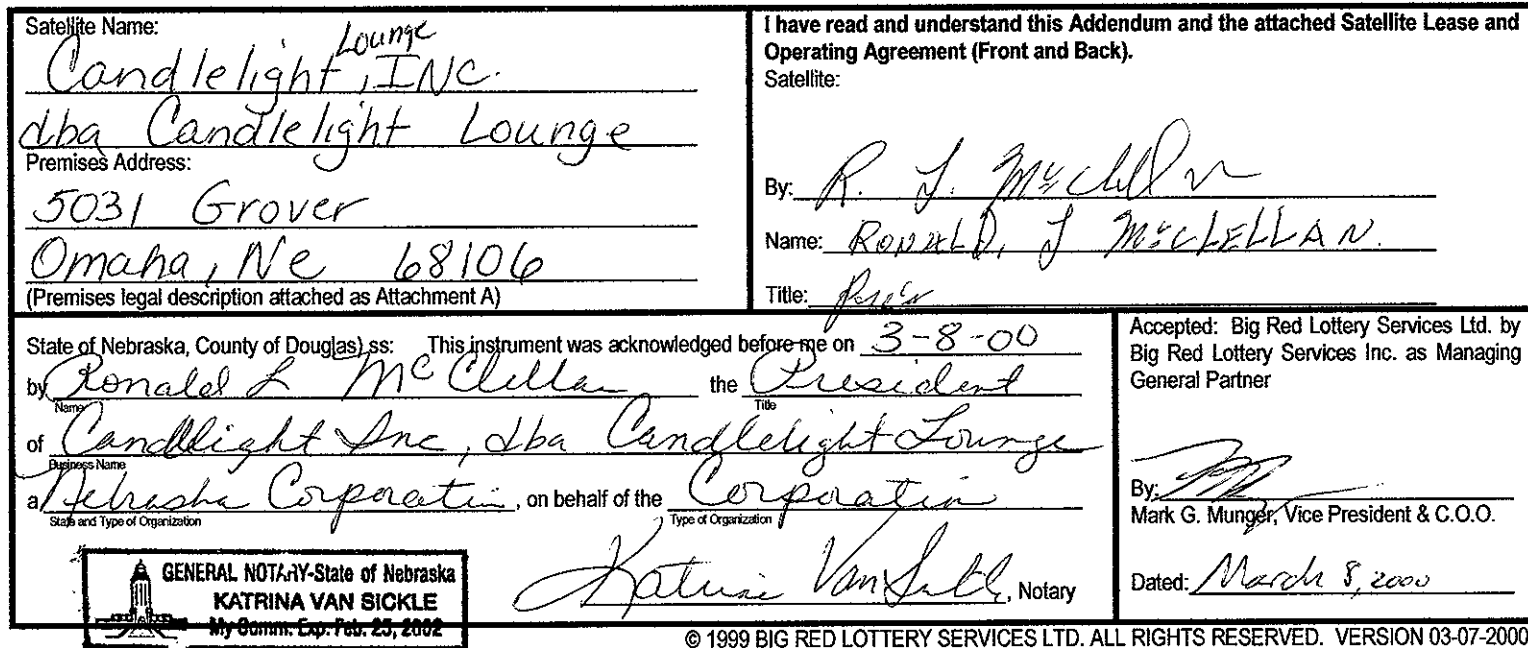 Satellite Name:
Lounge
Candlelight, INC.
dba Candlelight Lounge
Premises Address:
5031 Grover
Omaha, Ne 68106
(Premises legal description attached as Attachment A)
I have read and understand this Addendum and the attached Satellite Lease and
Operating Agreement (Front and Back).
Satellite:
By: R. J. McClellan
Name: RONALD, J McCLELLAN.
Title:
State of Nebraska, County of Douglas) ss: This instrument was acknowledged before me on 3-8-00
by Ronald L McClellan the President
Name Title
of Candlelight Inc, dba Candlelight Lounge
Business Name
a Nebraska Corporation, on behalf of the Corporation
State and Type of Organization Type of Organization
GENERAL NOTARY-State of Nebraska
KATRINA VAN SICKLE
My Comm. Exp. Feb. 25, 2002
Katrina Van Sickle, Notary
Accepted: Big Red Lottery Services Ltd. by
Big Red Lottery Services Inc. as Managing
General Partner
By:
Mark G. Munger, Vice President & C.O.O.
Dated: March 8, 2000
© 1999 BIG RED LOTTERY SERVICES LTD. ALL RIGHTS RESERVED. VERSION 03-07-2000